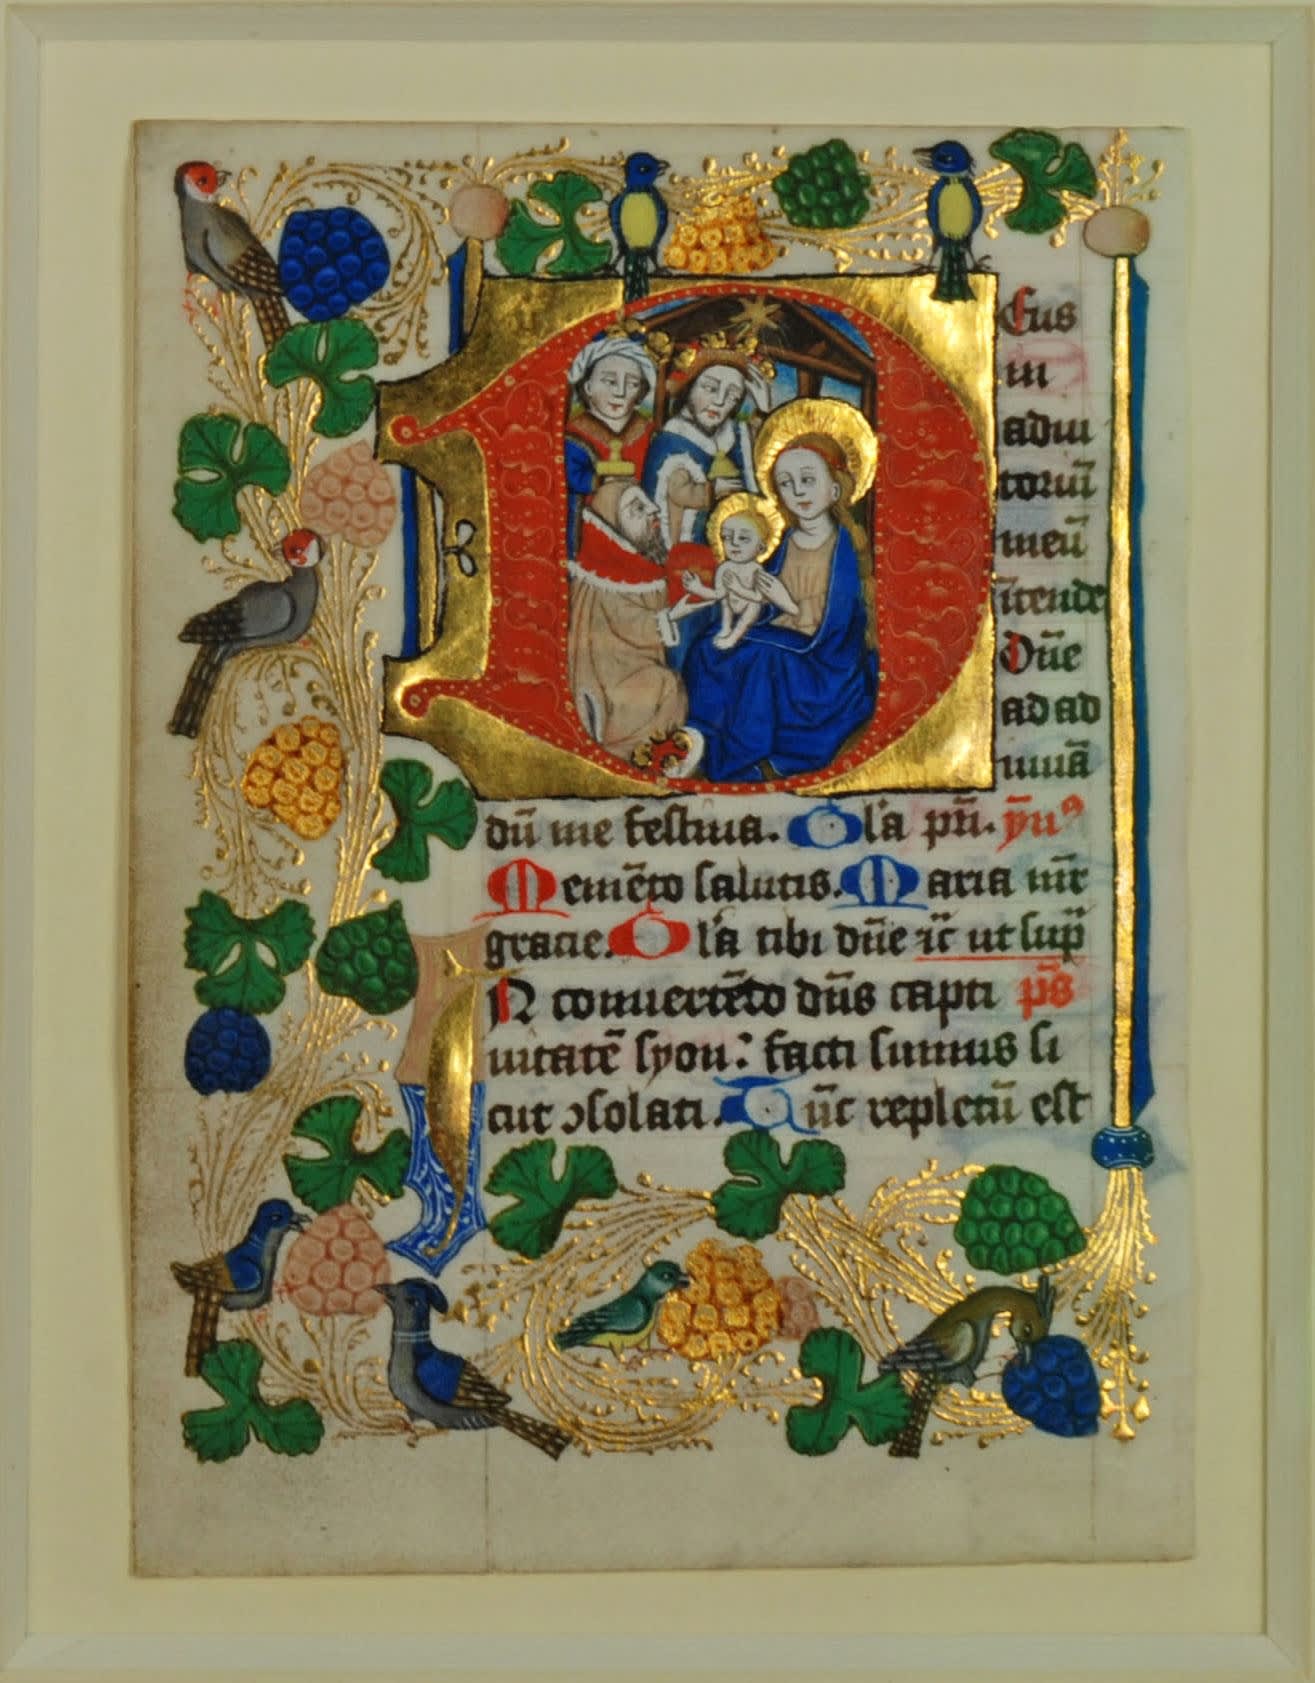 Deus
in
adiu
toriū
meū
ītende
Dn̄e
ad ad
iuuā
dū me festina. Gl'a pr̄i. ym̄⁹
Memēto salutis. Maria mr̄
gracie. Gl'a tibi dn̄e ⁊c̄ ut sup̄
IN conuertēdo dn̄s capti ps̄
uitatē syon: facti sumus si
cut ↄsolati. Tūc repletū est